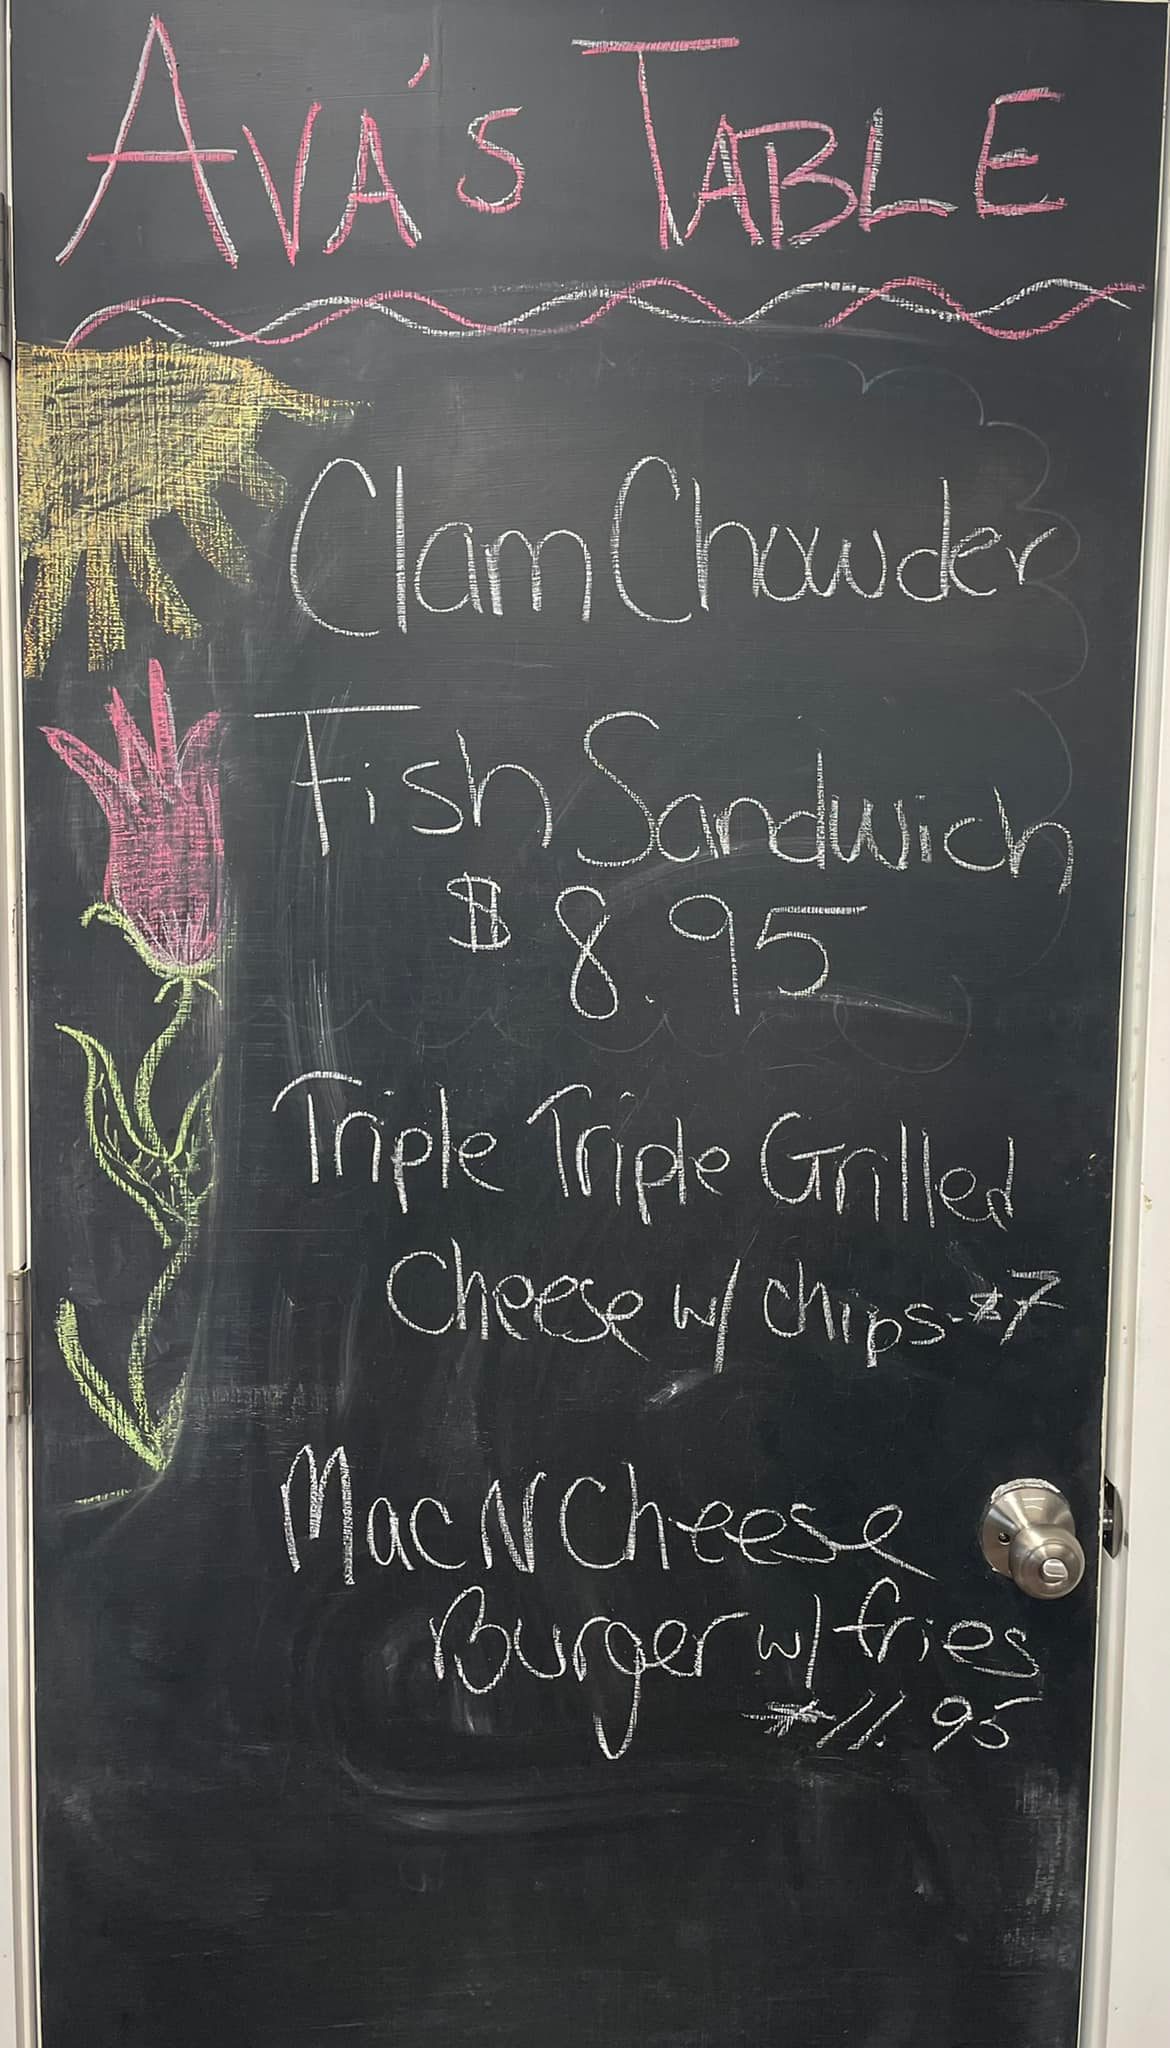 AVA'S TABLE
Clam Chowder
Fish Sandwich
$8.95
Triple Triple Grilled
Cheese w/ chips-$7
Mac N Cheese
Burger w/ fries
$11.95